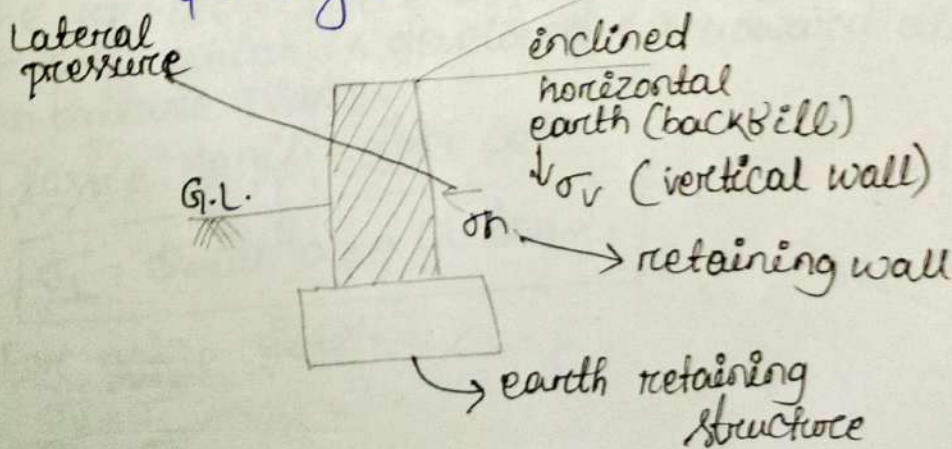 Lateral
pressure
inclined
horizontal
earth (backfill)
↓σv (vertical wall)
G.L.
σh
retaining wall
earth retaining
structure